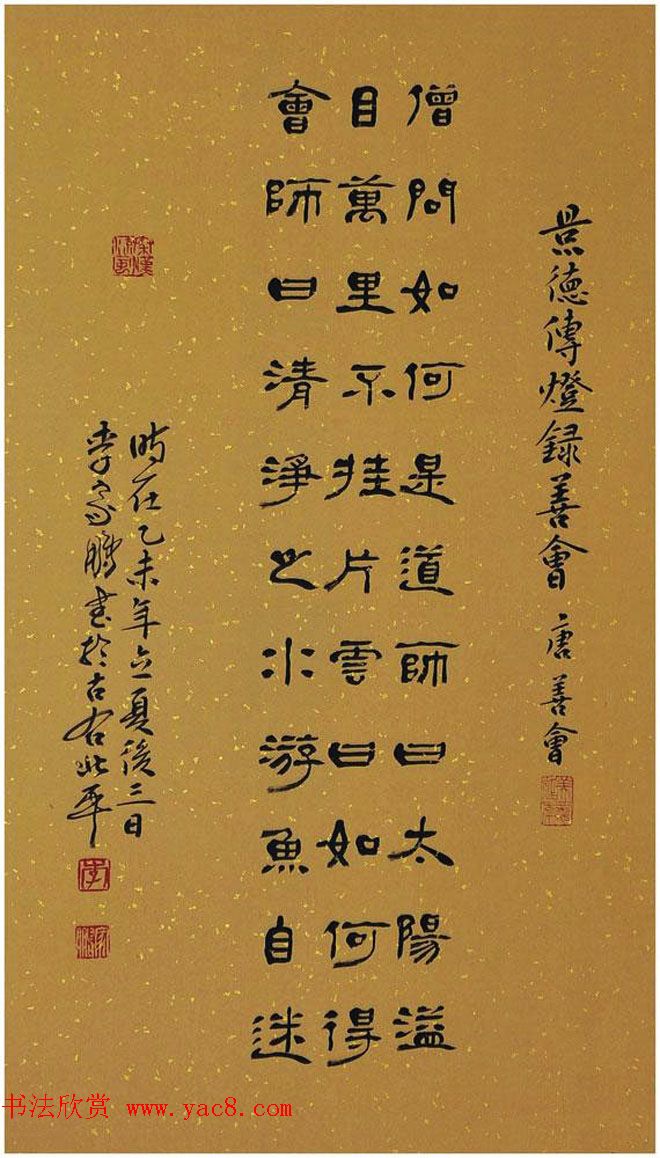 景德傳燈録善會 唐善會
僧問如何是道師曰太陽溢
目萬里不挂片雲曰如何得
會師曰清淨之水游魚自迷
時在乙未年立夏後三日
李家鵬書於古右北平
李
书法欣赏 www.yac8.com